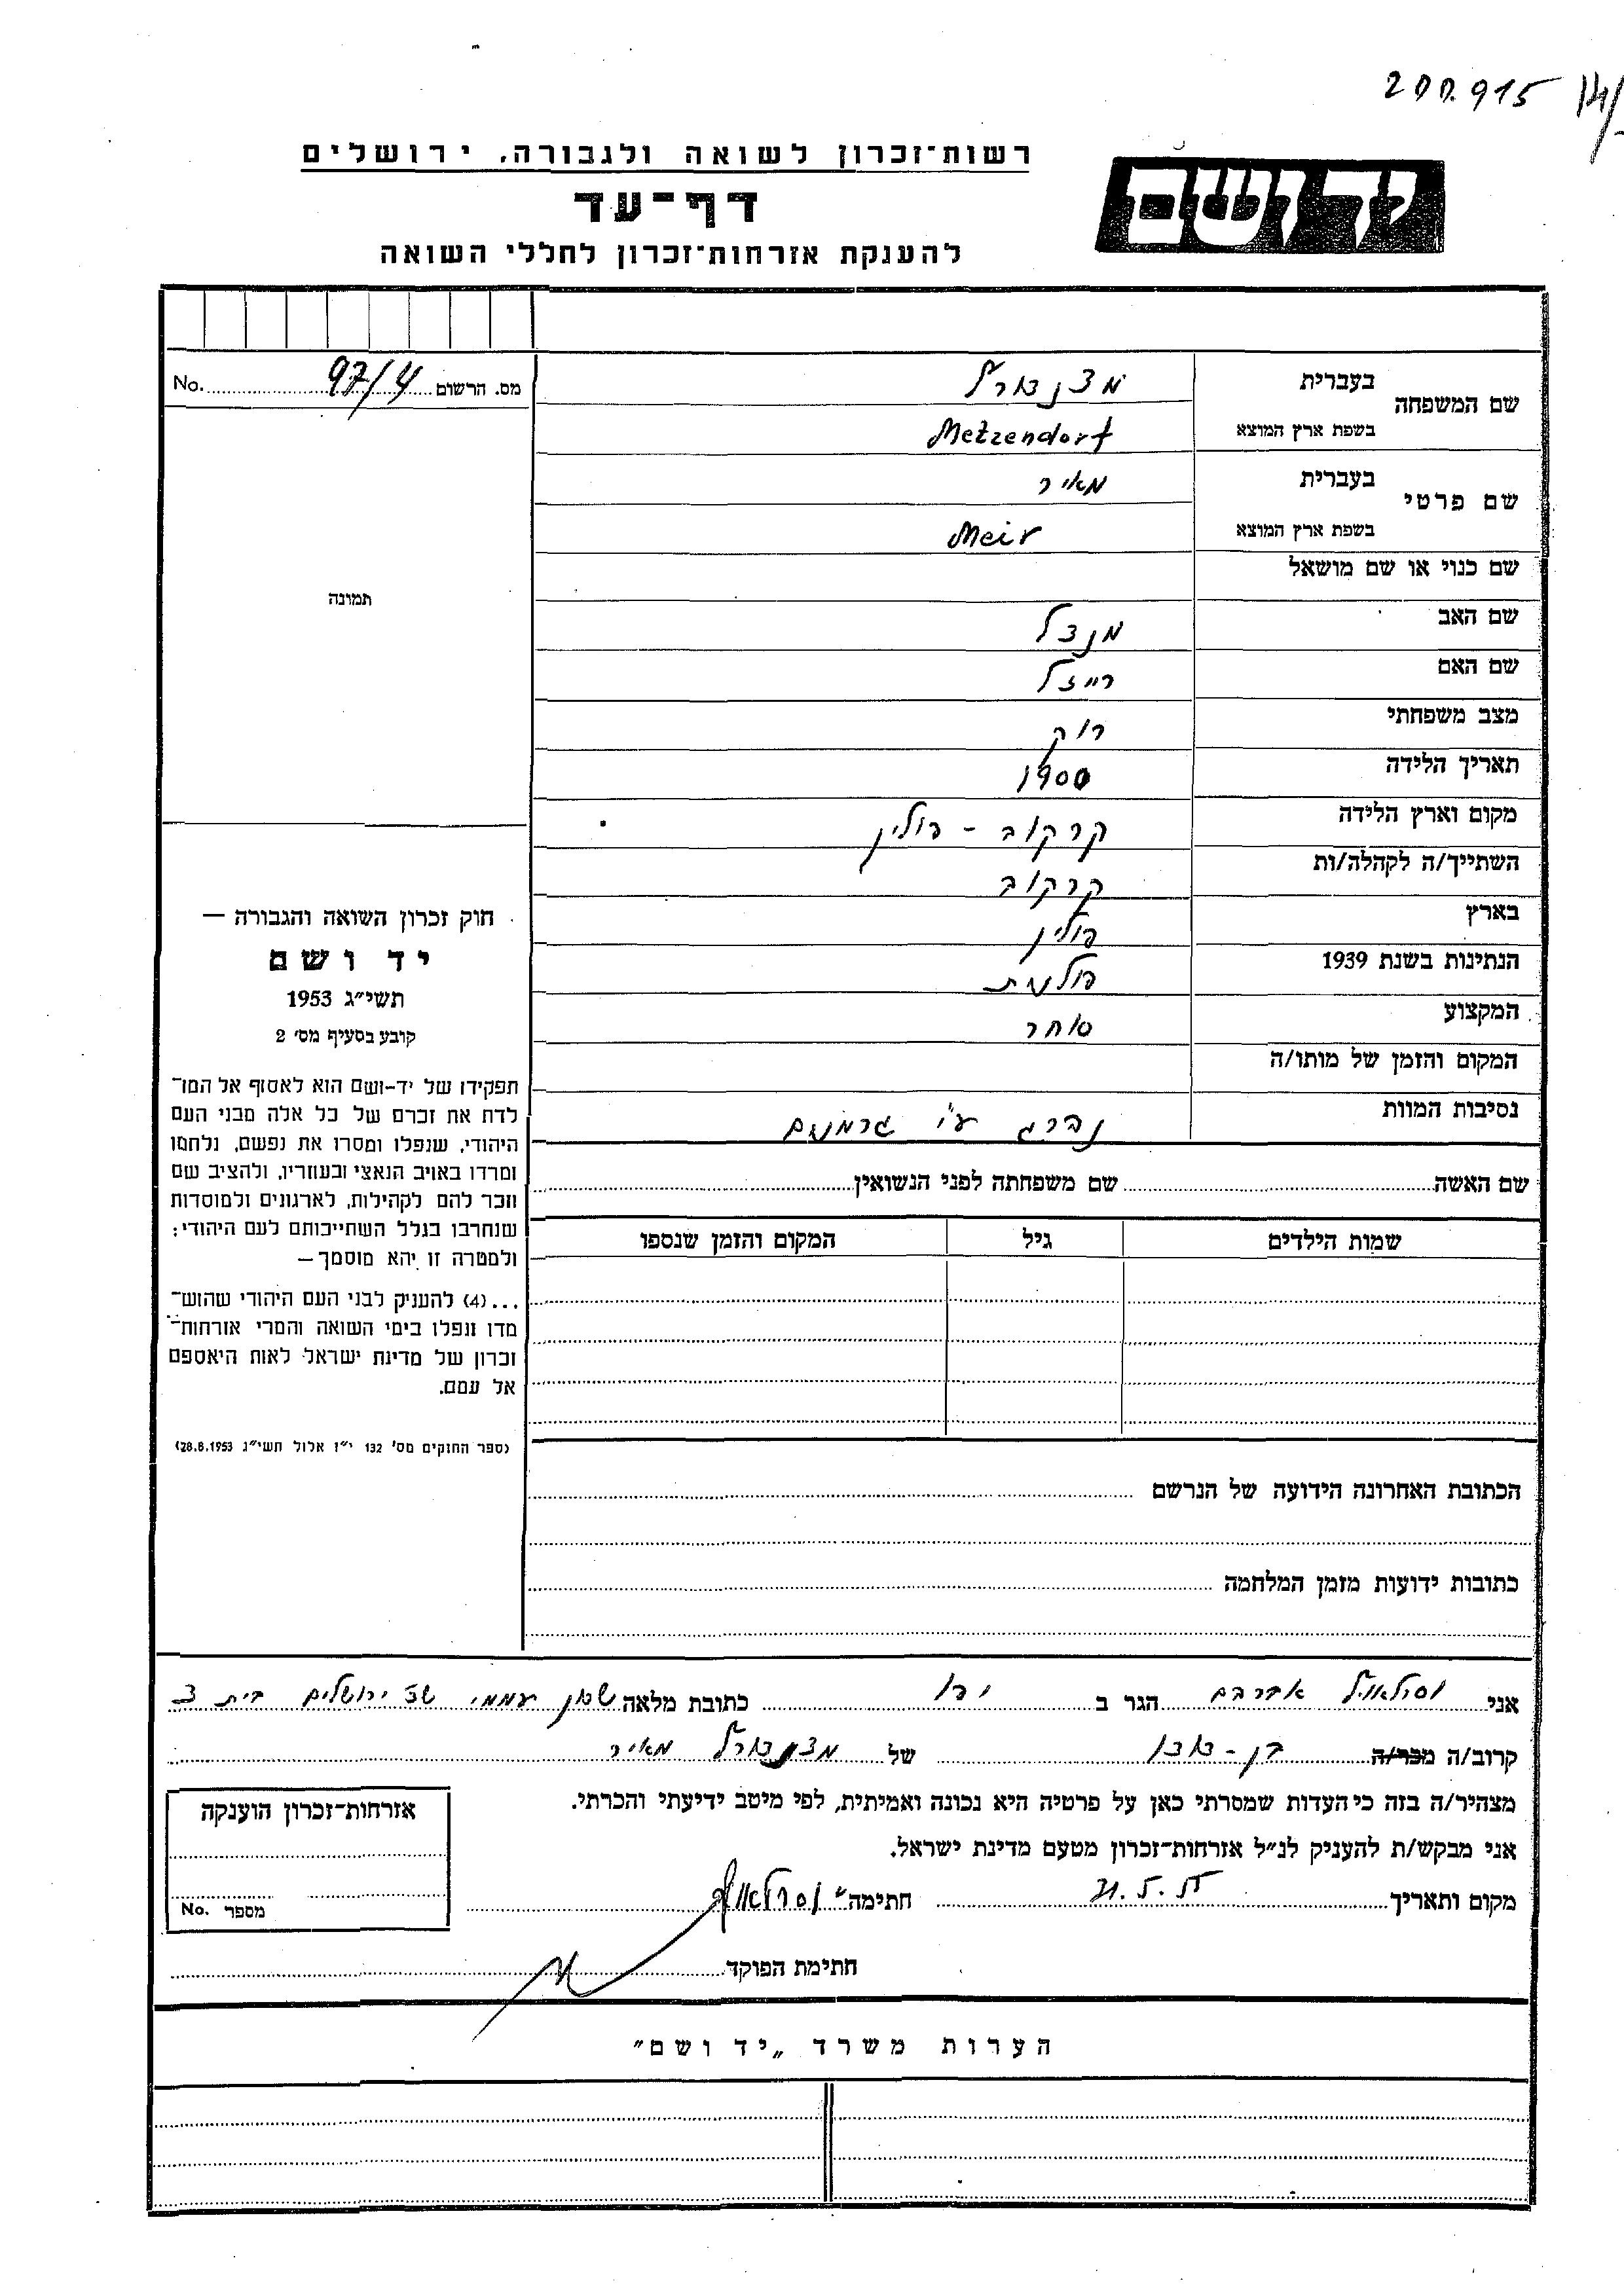 200.915 14/
רשות־זכרון לשואה ולגבורה, ירושלים
ידושם
דף־עד
להענקת אזרחות־זכרון לחללי השואה
שם המשפחה
בעברית מצנדורף
בשפת ארץ המוצא Metzendorf
מס. הרשום 97/4 No.
שם פרטי
בעברית מאיר
בשפת ארץ המוצא Meir
שם כנוי או שם מושאל
תמונה
שם האב מנדל
שם האם רייזל
מצב משפחתי רוק
תאריך הלידה 1900
מקום וארץ הלידה קרקוב - פולין
השתייך/ה לקהלה/ות קרקוב
בארץ פולין
הנתינות בשנת 1939 פולנית
המקצוע סוחר
המקום והזמן של מותו/ה
נסיבות המוות נהרג ע"י גרמנים
חוק זכרון השואה והגבורה —
יד ושם
תשי״ג 1953
קובע בסעיף מס׳ 2
תפקידו של יד-ושם הוא לאסוף אל המו־
לדת את זכרם של כל אלה מבני העם
היהודי, שנפלו ומסרו את נפשם, נלחמו
ומרדו באויב הנאצי ובעוזריו, ולהציב שם
וזכר להם לקהילות, לארגונים ולמוסדות
שנחרבו בגלל השתייכותם לעם היהודי;
ולמטרה זו יהא מוסמך —
...(4) להעניק לבני העם היהודי שהוש־
מדו ונפלו בימי השואה והמרי אזרחות־
זכרון של מדינת ישראל לאות היאספם
אל עמם.
(ספר החוקים מס׳ 132 י״ז אלול תשי״ג 28.8.1953)
שם האשה שם משפחתה לפני הנשואין
שמות הילדים גיל המקום והזמן שנספו
הכתובת האחרונה הידועה של הנרשם
כתובות ידועות מזמן המלחמה
אני אברהם הגר ב כתובת מלאה שכון עממי ירושלים בית
קרוב/ה מכר/ה בן - דודו של מצנדורף מאיר
מצהיר/ה בזה כי העדות שמסרתי כאן על פרטיה היא נכונה ואמיתית, לפי מיטב ידיעתי והכרתי.
אני מבקש/ת להעניק לנ״ל אזרחות־זכרון מטעם מדינת ישראל.
מקום ותאריך חתימה
חתימת הפוקד
אזרחות־זכרון הוענקה
מספר No.
הערות משרד „יד ושם״